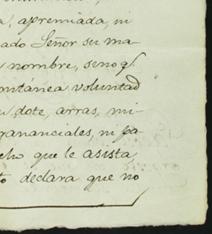 a, apremiada, ni
ado Señor su ma
nombre, seno q.
ontánea voluntad
dote, arras, mi
gananciales, ni pa
cho que le asista
to declara que no